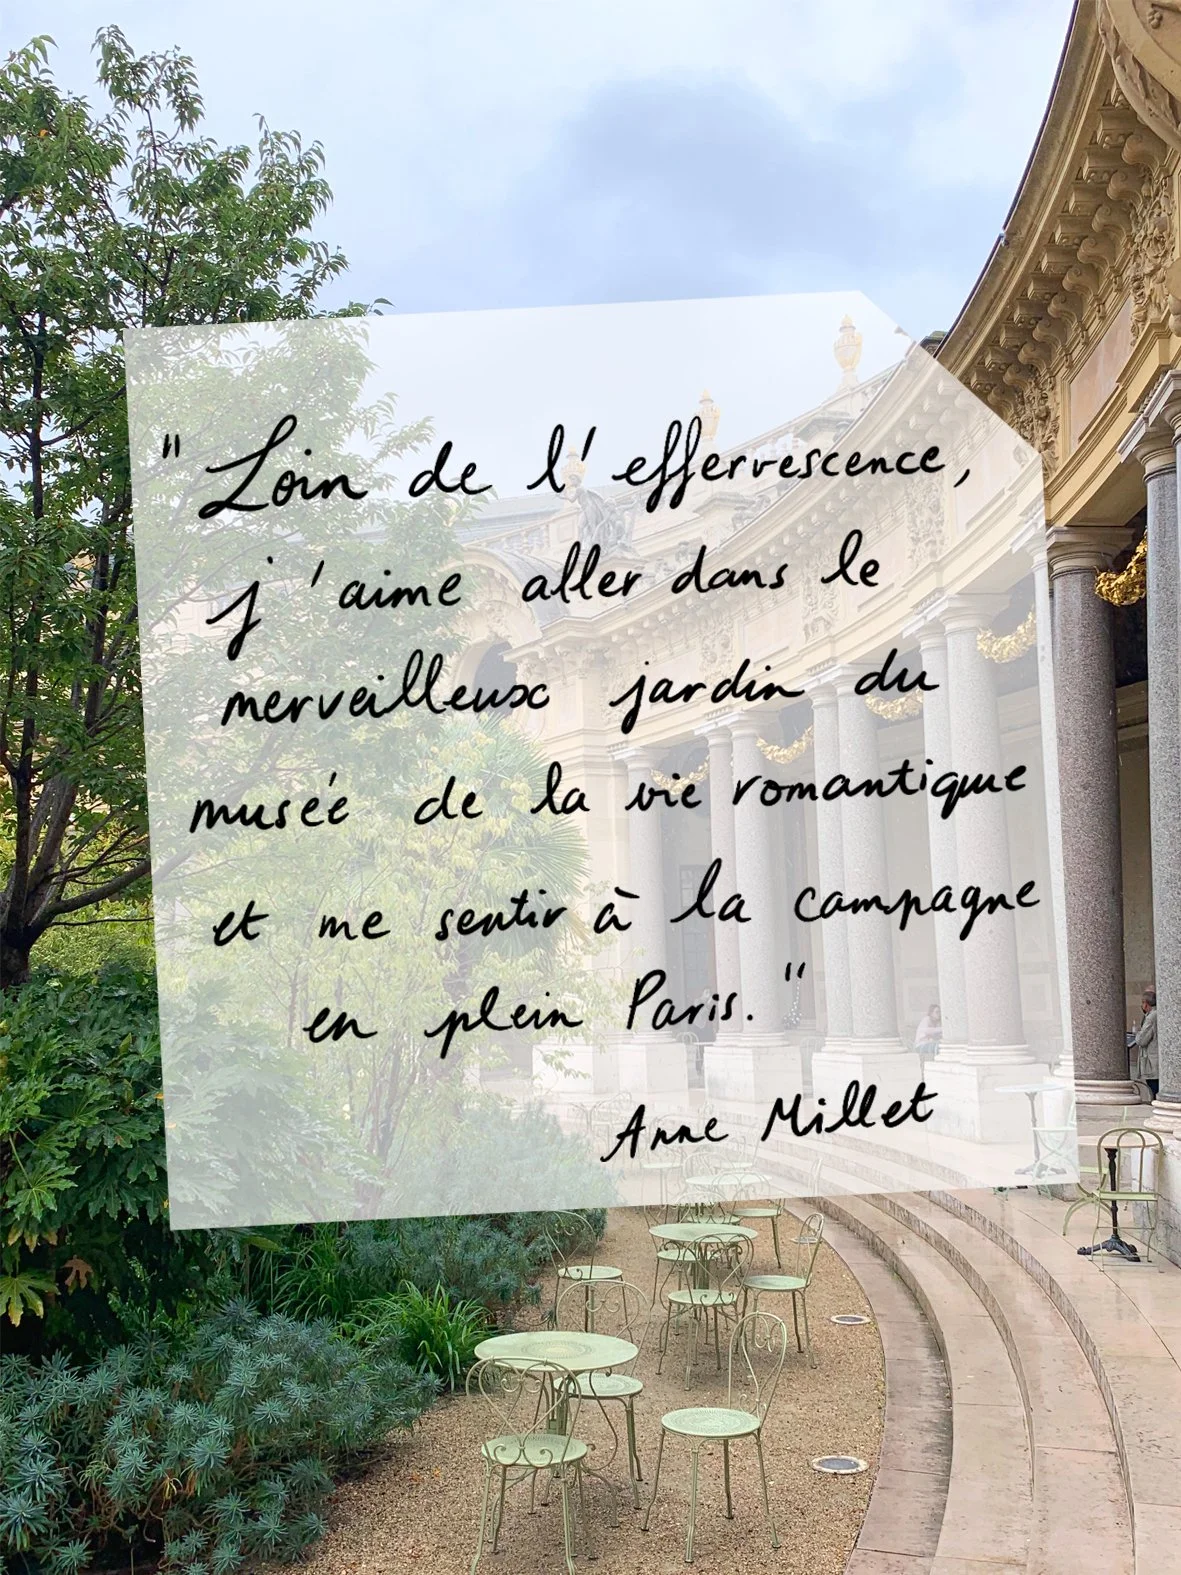 " Loin de l'effervescence,
j'aime aller dans le
merveilleux jardin du
musée de la vie romantique
et me sentir à la campagne
en plein Paris. "
Anne Millet